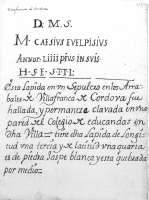 D. M. S.
M. CALSIVS EVELPISIVS
Annor. LIIII pivs in svis
H. S. E. S. T. T. L.
Esta Lapida en vn Sepulcro entre Arra-
bales de Villafranca de Cordova fue
hallada, y permanece clavada in vna
pared del Colegio de educandas en
dha Villa tiene dha Lapida de Longit
ud vna tercia y de latitud vna quarta
es de piedra Jaspe blanca y esta quebrada
por medio